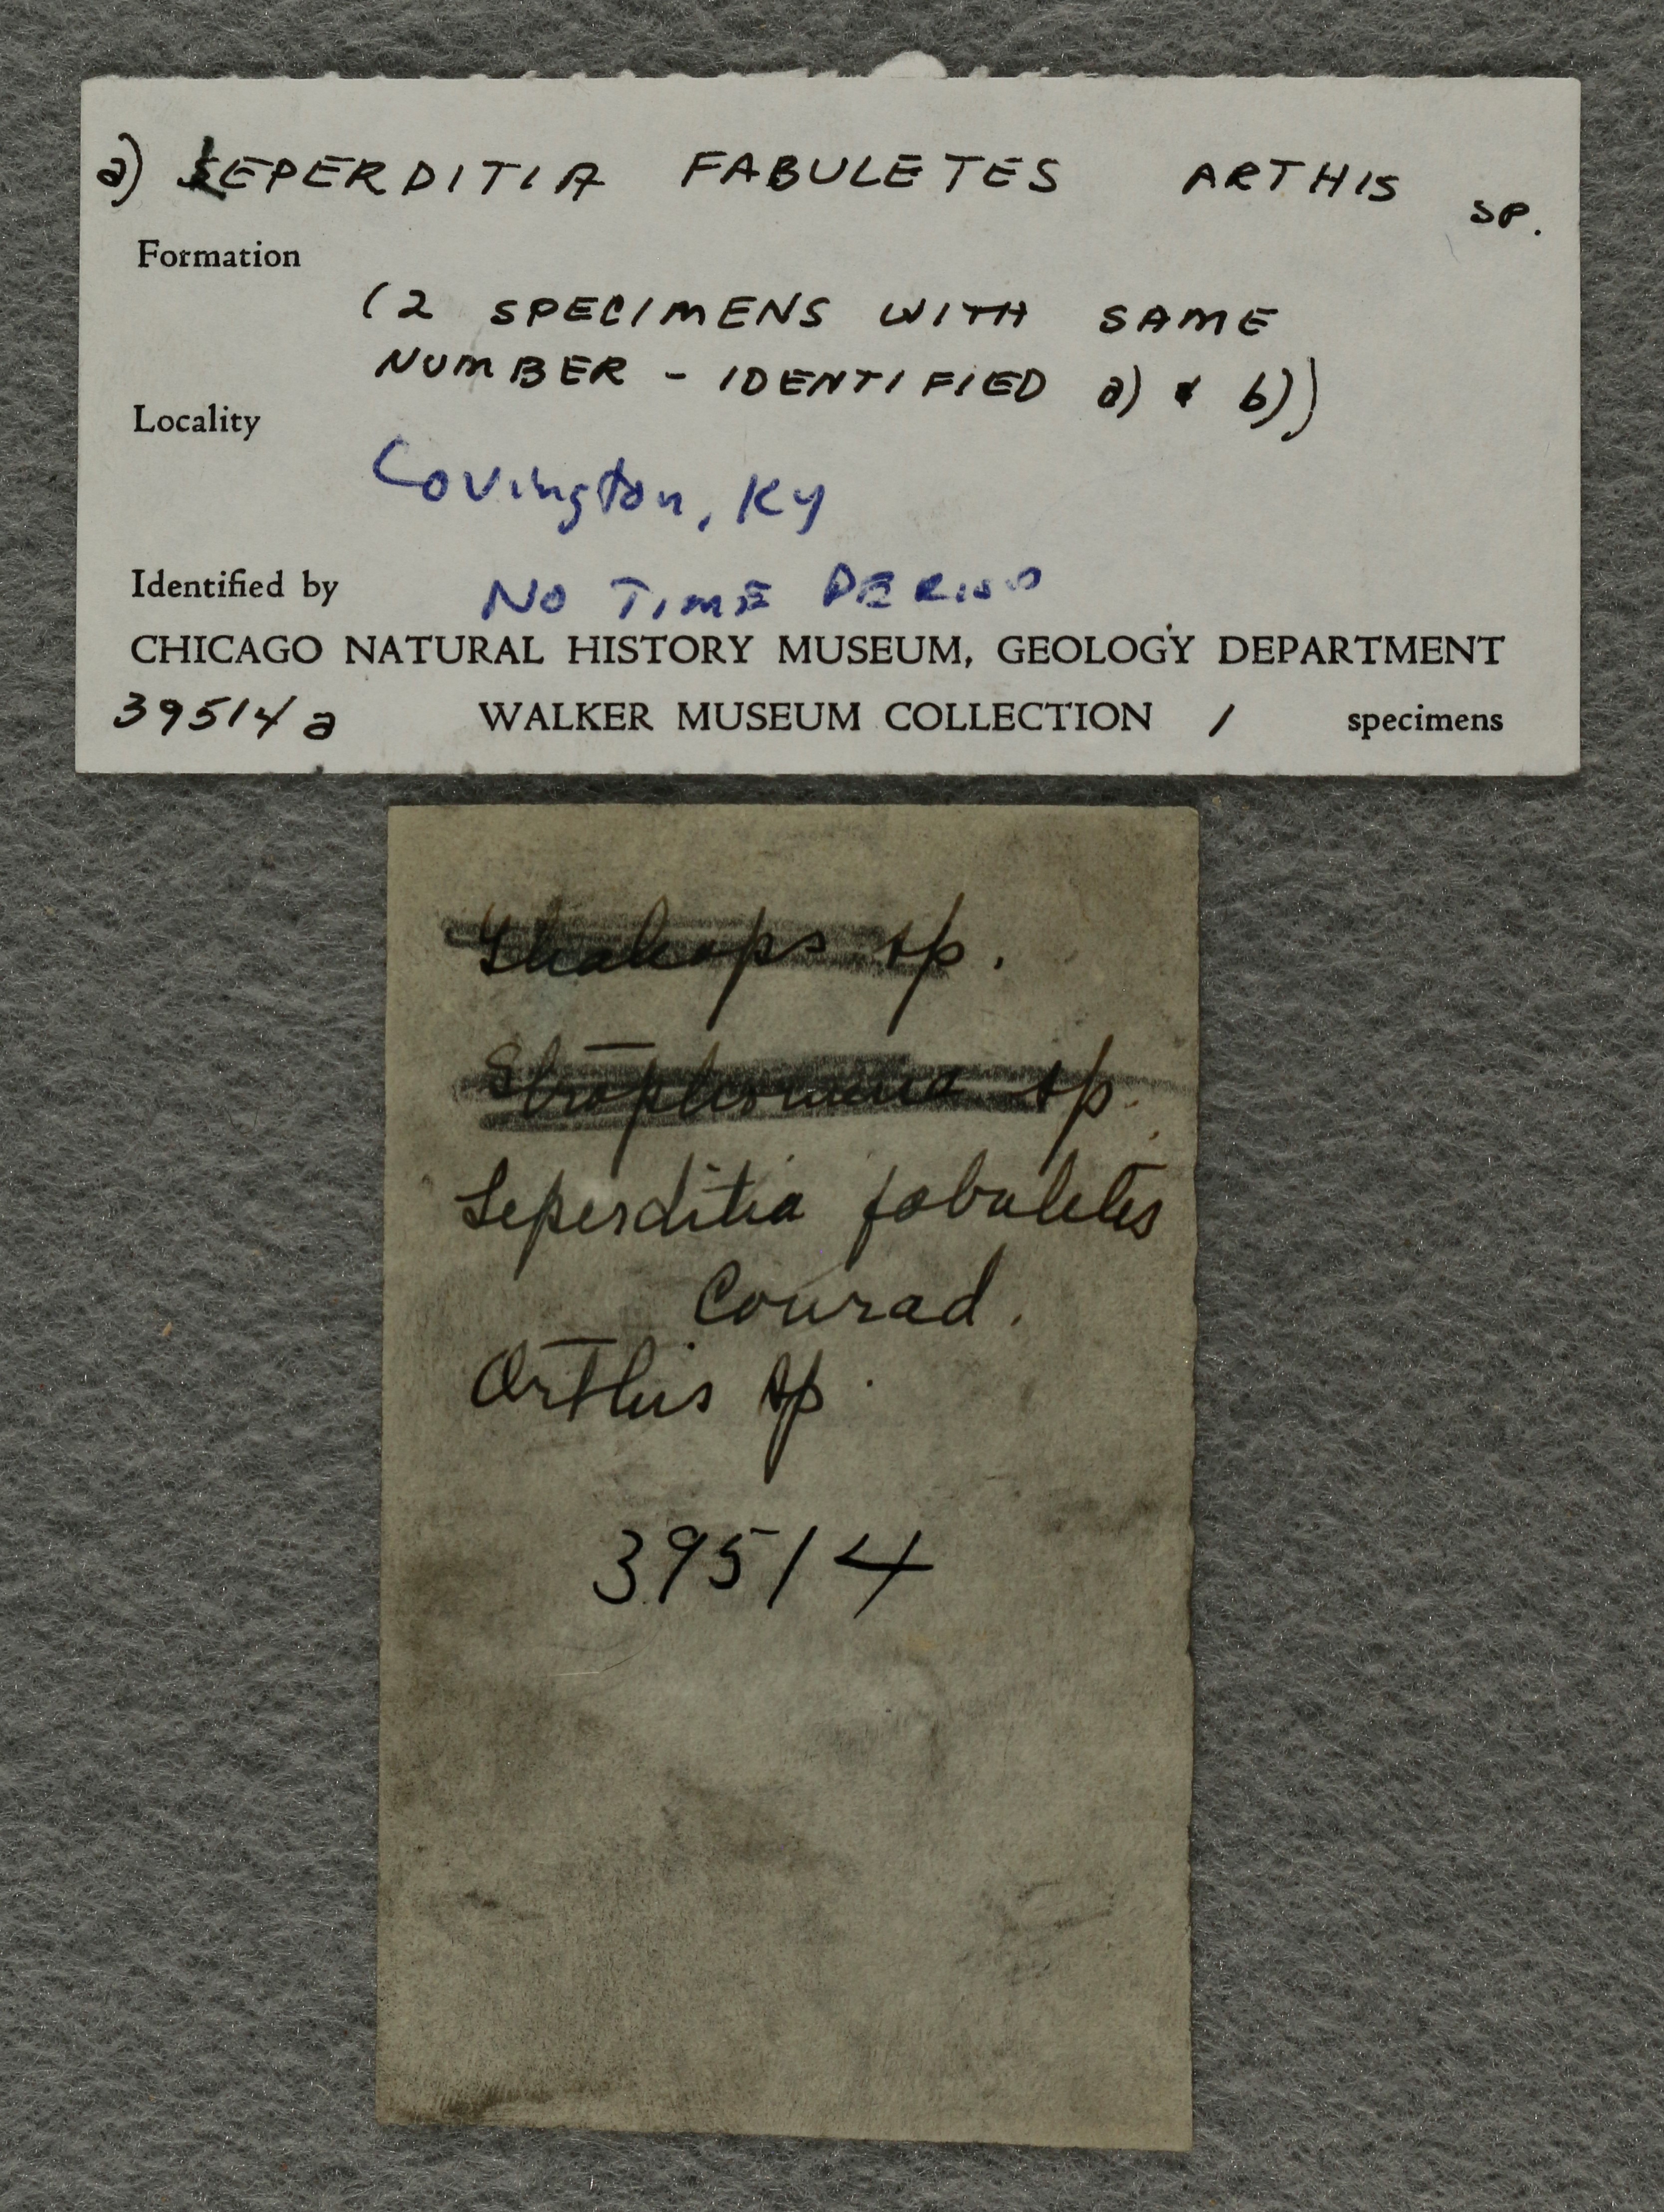 a) LEPERDITIA FABULETES ARTHIS SP.
Formation
(2 SPECIMENS WITH SAME
NUMBER - IDENTIFIED a) & b))
Locality
Covington, Ky
Identified by NO TIME PERIOD
CHICAGO NATURAL HISTORY MUSEUM, GEOLOGY DEPARTMENT
39514a WALKER MUSEUM COLLECTION 1 specimens
sp.
Strophomena sp.
Leperditia fabuletes
Conrad.
Orthis sp.
39514